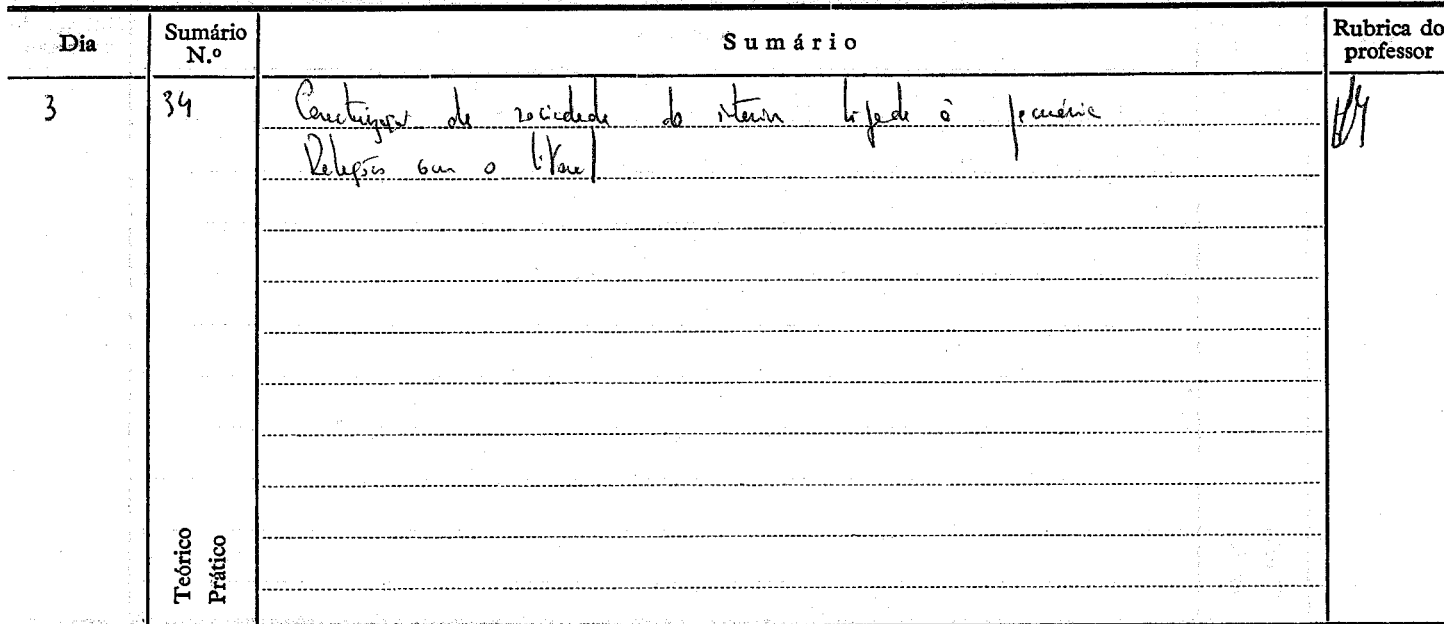 Dia
Sumário N.º
Sumário
Rubrica do professor
3
34
Caracterização da sociedade do interior ligada à pecuária
Relações com o litoral
Teórico
Prático